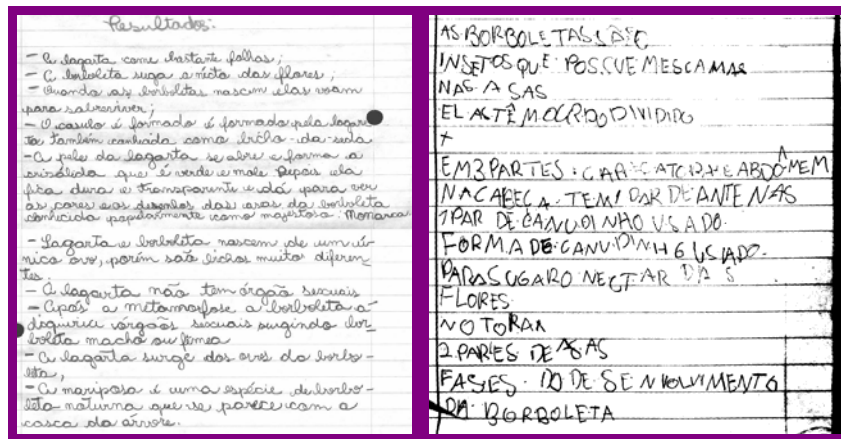 Resultados:
- A lagarta come bastante folhas;
- A borboleta suga o nécta das flores;
- Quando as borbolitas nascem elas voam
para sobreviver;
- O casulo é formado é formado pela lagar
ta também conhecida como bicho-da-seda
- A pele da lagarta se abre e forma a
crisálida que é verde e mole Depois ela
fica dura e transparente e dá para ver
as cores e os desenhos das asas da borboleta
conhecida popularmente como majestosa: Monarca
- Lagarta e borboleta nascem de um ú-
nico ovo, porém saõ bichos muitos diferen-
tes.
- A lagarta não tem órgão sexuais
- Após a metamorfose a borboleta a-
dquirir orgaõs sexuais surgindo bor-
boleta macho ou fêmea
- A lagarta surge dos ovos da borbo-
leta,
- A mariposa é uma espécie de borbo-
leta noturna que se parece com a
casca da árvore.
AS BORBOLETAS SÃO
INSETOS QUE POSSUEM ESCAMAS
NAS ASAS
ELAS TÊM O CORPO DIVIDIDO
+
EM 3 PARTES: CABEÇA TORAX E ABDOMEM
NA CABEÇA TEM 1 PAR DE ANTENAS
1 PAR DE CANUDINHO USADO.
FORMA DE CANUDINHO USADO.
PARA SUGAR O NECTAR DAS
FLORES.
NO TORAX
2 PARES DE ASAS
FASES DO DESENVOLVIMENTO
DA BORBOLETA